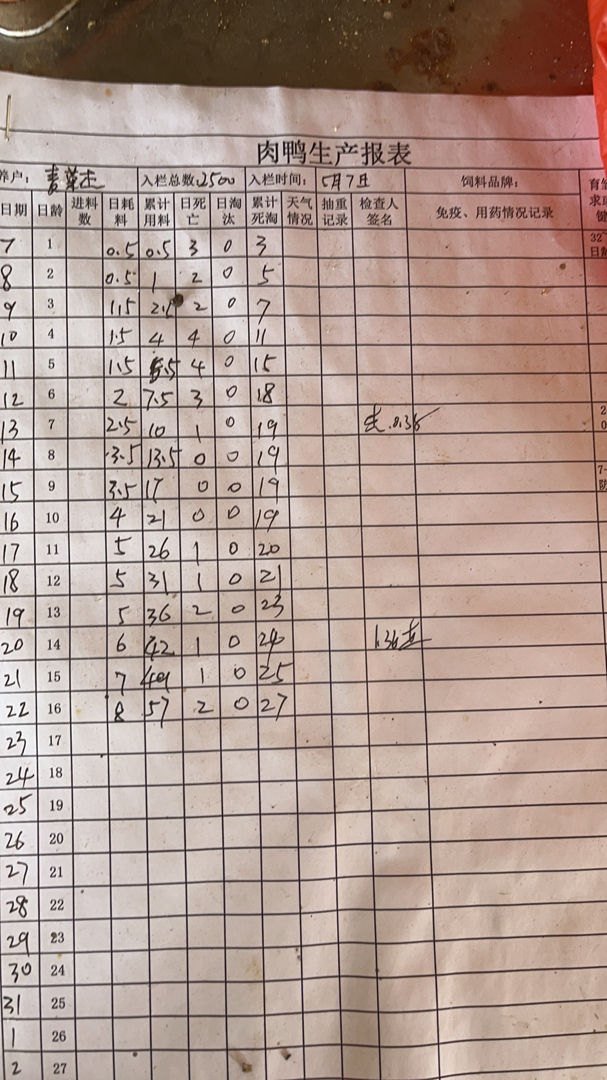 肉鸭生产报表
养户： 入栏总数：2500 入栏时间：5月7日 饲料品牌：
日期 日龄 进料数 日耗料 累计用料 日死亡 日淘汰 累计死淘 天气情况 抽重记录 检查人签名 免疫、用药情况记录
7 1 0.5 0.5 3 0 3
8 2 0.5 1 2 0 5
9 3 1.5 2.5 2 0 7
10 4 1.5 4 4 0 11
11 5 1.5 5.5 4 0 15
12 6 2 7.5 3 0 18
13 7 2.5 10 1 0 19 0.36
14 8 3.5 13.5 0 0 19
15 9 3.5 17 0 0 19
16 10 4 21 0 0 19
17 11 5 26 1 0 20
18 12 5 31 1 0 21
19 13 5 36 2 0 23
20 14 6 42 1 0 24 1.36
21 15 7 49 1 0 25
22 16 8 57 2 0 27
23 17
24 18
25 19
26 20
27 21
28 22
29 23
30 24
31 25
1 26
2 27